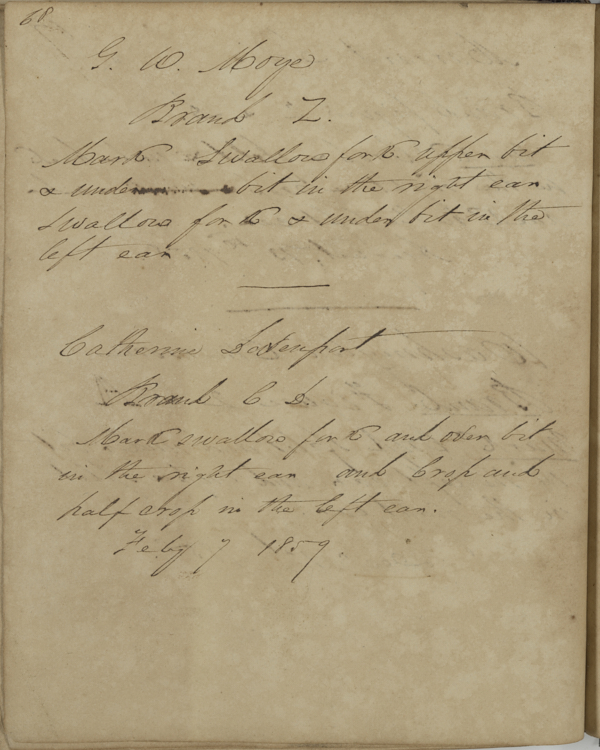 68
G. W. Moye
Brand Z.
Mark Swallow fork upper bit
& under bit in the right ear
Swallow fork & under bit in the
left ear
Catherine Davenport
Brand C D
Mark swallow fork and over bit
in the right ear and Crop and
half crop in the left ear.
Feby 7 1859.